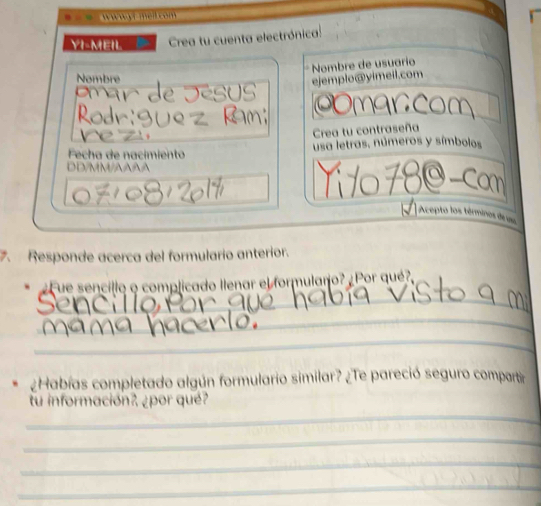 www.yi-meil.com
YI-MEIL Crea tu cuenta electrónica
Nombre
omar de Jesus
Rodriguez Rami
rezi.
Fecha de nacimiento
DD/MM/AAAA
07/08/2017
Nombre de usuario
ejemplo@yimeil.com
@Omar.com
Crea tu contraseña
usa letras, números y símbolos
Yito78@-com
Acepto los términos de uso
7. Responde acerca del formulario anterior.
• ¿Fue sencillo o complicado llenar el formulario? ¿Por qué?
Sencillo, por que habia visto a mi
mama hacerlo.
• ¿Habías completado algún formulario similar? ¿Te pareció seguro compartir
tu información?, ¿por qué?